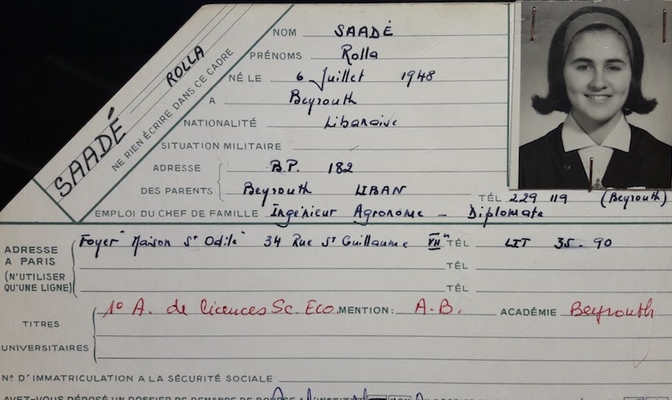 SAADÉ ROLLA
NE RIEN ÉCRIRE DANS CE CADRE
NOM SAADÉ
PRÉNOMS Rolla
NÉ LE 6 Juillet 1948
A Beyrouth
NATIONALITÉ Libanaise
SITUATION MILITAIRE
ADRESSE B.P. 182
DES PARENTS Beyrouth LIBAN TÉL 229 119 (Beyrouth)
EMPLOI DU CHEF DE FAMILLE Ingénieur Agronome - Diplomate
ADRESSE A PARIS (N'UTILISER QU'UNE LIGNE) Foyer "Maison St Odile" 34 Rue St Guillaume VIIe TÉL LIT 35-90
TÉL
TÉL
TITRES UNIVERSITAIRES 1° A. de licences Sc. Eco. MENTION: A.B. ACADÉMIE Beyrouth
N° D'IMMATRICULATION A LA SÉCURITÉ SOCIALE
AVEZ-VOUS DÉPOSÉ UN DOSSIER DE DEMANDE DE